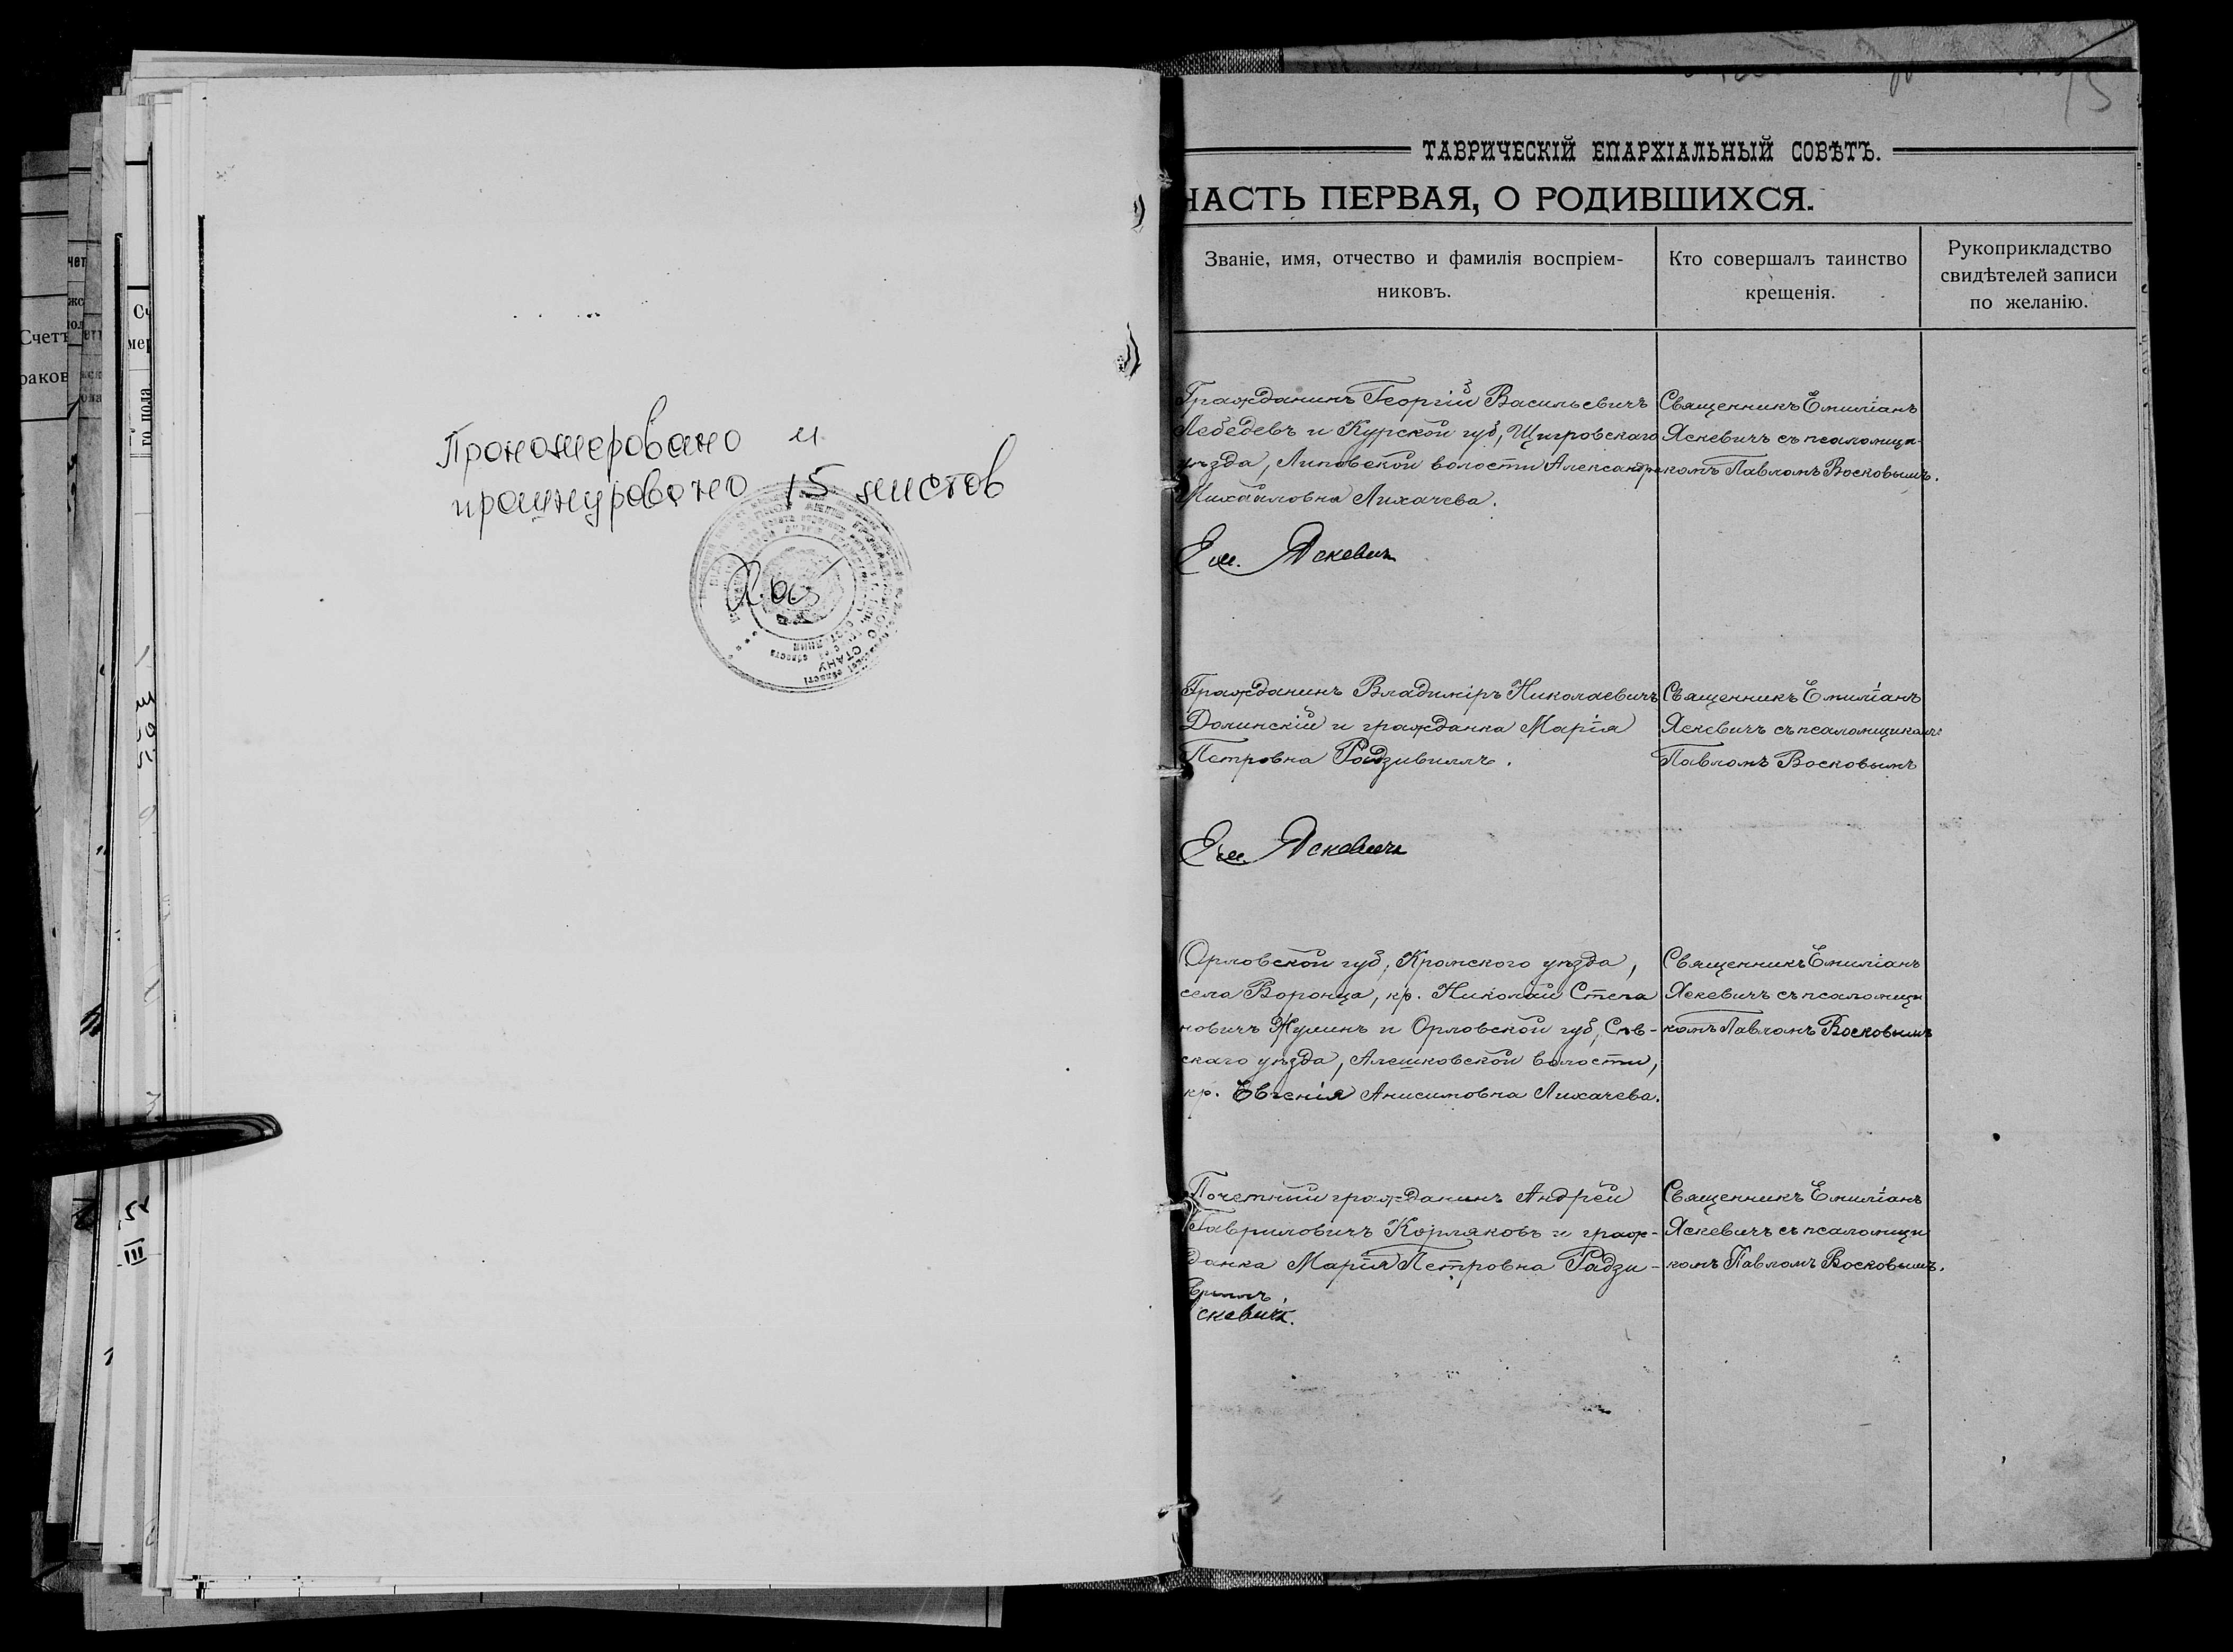 Прономеровано и
прошнуровано 15 листов
15
ТАВРИЧЕСКІЙ ЕПАРХІАЛЬНЫЙ СОВѢТЪ.
ЧАСТЬ ПЕРВАЯ, О РОДИВШИХСЯ.
Званіе, имя, отчество и фамилія воспріем-
никовъ.
Кто совершалъ таинство
крещенія.
Рукоприкладство
свидѣтелей записи
по желанію.
Гражданинъ Георгій Васильевичъ
Лебедевъ и Курской губ, Щигровскаго
уѣзда, Липовской волости Александра
Михайловна Лихачева.
Ем. Яскевич
Священникъ Емиліанъ
Яскевичъ съ псаломщи-
комъ Павломъ Восковымъ.
Гражданинъ Владиміръ Николаевичъ
Долинскій и гражданка Марія
Петровна Радзивиллъ.
Ем. Яскевичъ
Священникъ Емиліанъ
Яскевичъ съ псаломщикомъ
Павломъ Восковымъ
Орловской губ, Кромского уѣзда,
села Воронца, кр. Николай Степа
новичъ Жулинъ и Орловской губ, Сѣв-
скаго уѣзда, Алешковской волости,
кр. Евгенія Анисимовна Лихачева.
Священникъ Емиліанъ
Яскевичъ съ псаломщи
комъ Павломъ Восковымъ
Почетный гражданинъ Андрей
Гавриловичъ Корляковъ и граж-
данка Марія Петровна Радзи-
виллъ.
Яскевичъ.
Священникъ Емиліанъ
Яскевичъ съ псаломщи
комъ Павломъ Восковымъ.